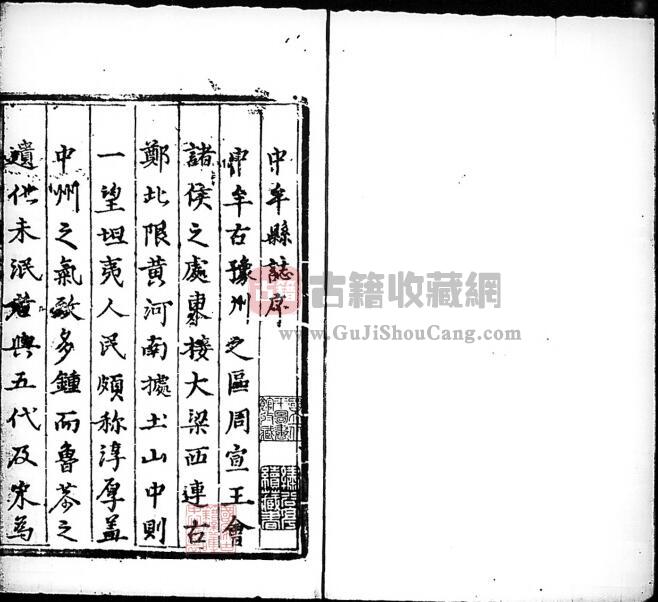 中牟縣誌序
中牟古豫州之區周宣王會
諸侯之處東接大梁西連古
鄭北限黃河南據土山中則
一望坦夷人民頗称淳厚蓋
中州之氣多鍾而魯恭之
遺化未泯五代及宋為
古籍收藏網
www.GuJiShouCang.com